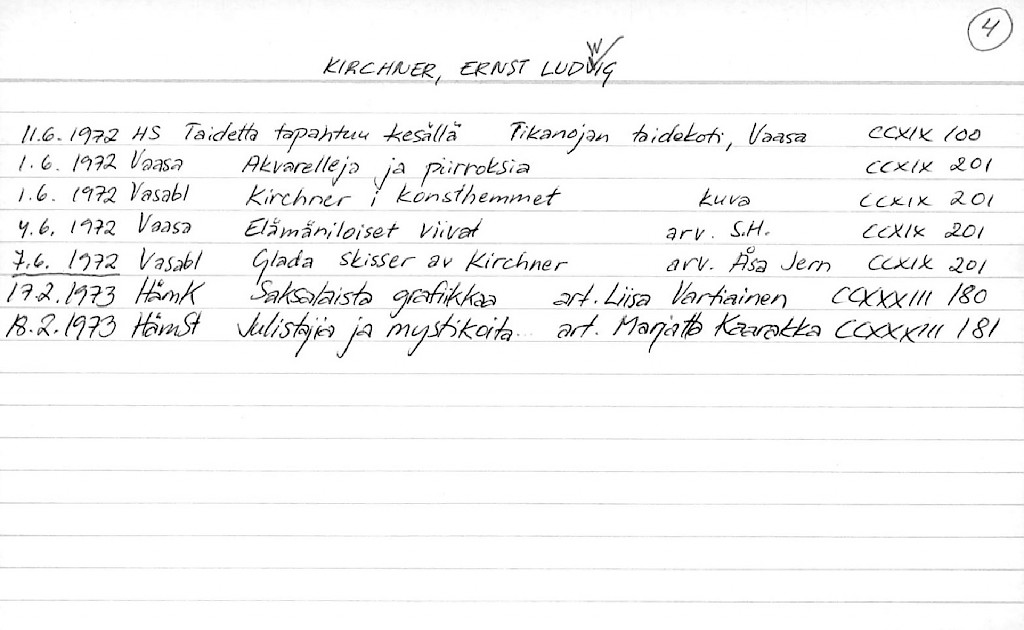 4
KIRCHNER, ERNST LUDWIG
11.6. 1972 HS Taidetta tapahtuu kesällä Tikanojan taidekoti, Vaasa CCXIX 100
1.6. 1972 Vaasa Akvarelleja ja piirroksia CCXIX 201
1.6. 1972 Vasabl Kirchner i konsthemmet kuva CCXIX 201
4.6. 1972 Vaasa Elämäniloiset viivat arv. S.H. CCXIX 201
7.6. 1972 Vasabl Glada skisser av Kirchner arv. Åsa Jern CCXIX 201
17.2.1973 HämK Saksalaista grafiikkaa art. Liisa Vartiainen CCXXXIII 180
18.2.1973 HämSt Julistajia ja mystikoita art. Marjatta Kaarakka CCXXXIII 181